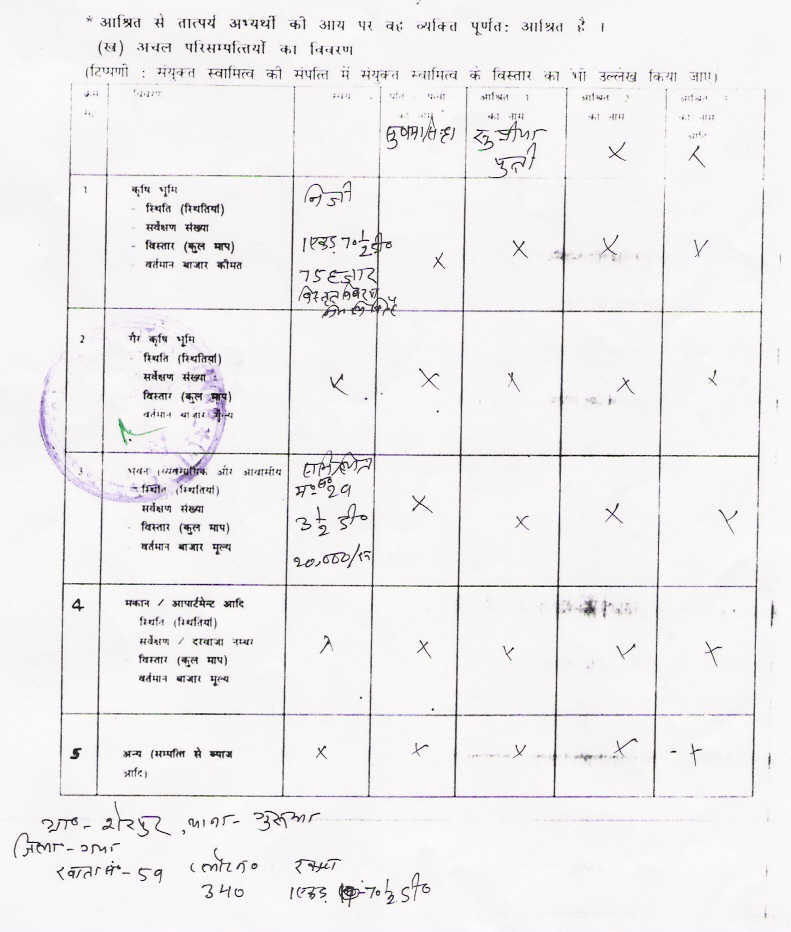 * आश्रित से तात्पर्य अभ्यर्थी की आय पर वह व्यक्ति पूर्णतः आश्रित है ।
(ख) अचल परिसम्पत्तियों का विवरण
(टिप्पणी : संयुक्त स्वामित्व की संपत्ति में संयुक्त स्वामित्व के विस्तार का भी उल्लेख किया जाए)
क्रम सं. विवरण स्वयं पति पत्नी का नाम आश्रित 1 का नाम आश्रित 2 का नाम आश्रित 3 का नाम आदि
सुषमा सिन्हा पुत्री X X
1 कृषि भूमि निजी
- स्थिति (स्थितियां)
- सर्वेक्षण संख्या
- विस्तार (कुल माप) 1एकड़ 70 1/2 डी० X X X X
- वर्तमान बाजार कीमत 75 हजार
विस्तृत विवरण
2 गैर कृषि भूमि
- स्थिति (स्थितियां)
सर्वेक्षण संख्या : X X X X X
विस्तार (कुल माप)
वर्तमान बाजार मूल्य
3 भवन (व्यवसायिक और आवासीय
- स्थिति (स्थितियां) म० सं० 29
सर्वेक्षण संख्या X X X X
- विस्तार (कुल माप) 3 1/2 डी०
- वर्तमान बाजार मूल्य 20,000/रु
4 मकान / आपार्टमेन्ट आदि
स्थिति (स्थितियां)
सर्वेक्षण / दरवाजा नम्बर X X X X X
विस्तार (कुल माप)
वर्तमान बाजार मूल्य
5 अन्य (सम्पत्ति से ब्याज X X X X - X
आदि)
ग्राम- शेरपुर, थाना- गुरूआ
जिला- गया
खाता सं- 59 प्लौट न० रकबा
340 1एकड़ 70 1/2 डी०